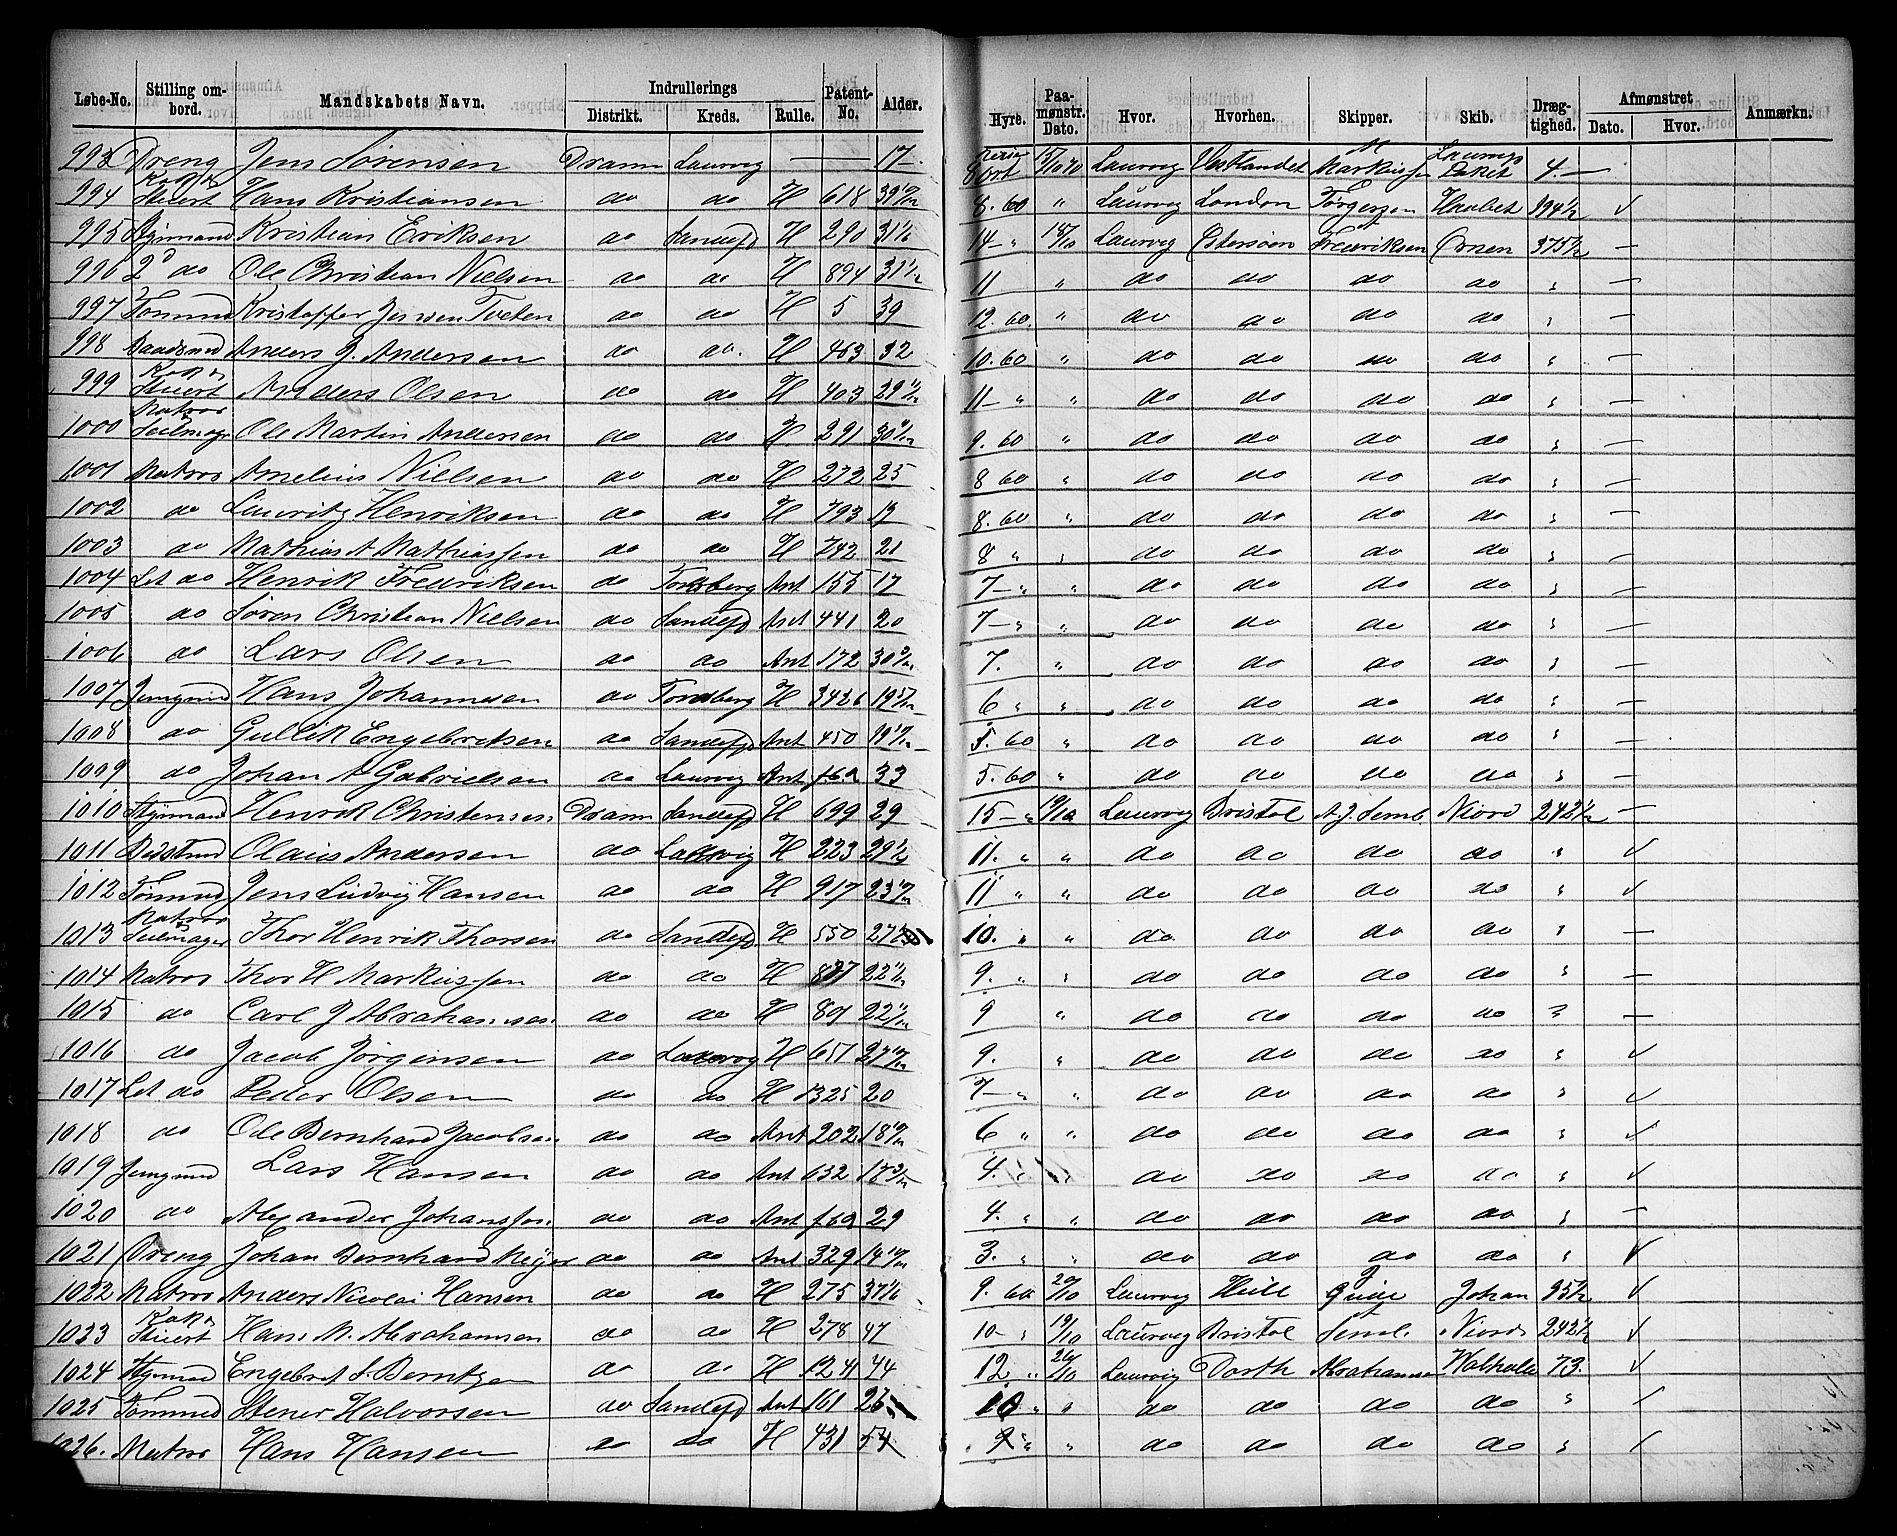 Løbe-No. Stilling ombord. Mandskabets Navn. Indrullerings Distrikt. Kreds. Rulle. Patent-No. Alder. Hyre. Paamønstr. Dato. Hvor. Hvorhen. Skipper. Skib. Drægtighed. Afmønstret Dato. Hvor. Anmærkn.
993 Dreng Jens Sørensen Dramn Laurvig — — 17 Laurvig Vestlandet 4 —
994 Kok & Stuert Hans Kristiansen do do H 618 8.60 " Laurvig London Haabet 394½ ✓
995 Styrmand Kristian Eriksen do Sandefj H 290 14 - " 18/10 Laurvig Østersøen Fredriksen Ørnen 375½ —
996 2d do Ole Christian Nielsen do do H 894 11 " do do do do " —
997 Tømmd Kristoffer Jensen Tveten do do H 5 39 12.60 " do do do do " —
998 Baadsmd Anders J. Andersen do do H 463 32 10.60 " do do do do " —
999 Kok & Stuert Anders Olsen do do H 403 11 - " " do do do do " —
1000 Matros Seilmager Ole Martin Andersen do do H 291 9.60 " do do do do " —
1001 Matros Amelius Nielsen do do H 272 25 8 60 " do do do do " —
1002 do Lauritz Henriksen do do H 793 19 8.60 " do do do do " —
1003 do Mathias A Mathiassen do do H 742 21 8 " " do do do do " —
1004 Let do Henrik Fredriksen do Tønsberg Ant 155 17 7 - " " do do do do " —
1005 do Søren Christian Nielsen do Sandefj Ant 441 20 7 - " " do do do do " —
1006 do Lars Olsen do do Ant 172 7. " do do do do " —
1007 Jungmd Hans Johannesen do Tønsberg H 3426 6 " " do do do do " —
1008 do Gullik Engebriksen do Sandefj Ant 450 5.60 " do do do do " —
1009 do Johan A Gabrielsen do Laurvig Ant 33 5.60 " do do do do " —
1010 Styrmand Henrik Christensen Dramn Sandefj H 699 29 15 - " 19/10 Laurvig Bristol A.J. Seml. Niord 242½ —
1011 Bdstmd Olaus Andersen do Laurvig H 223 29½ 11. " " do do do do " ✓
1012 Tømmd Jens Ludvig Hansen do do H 917 11 " " do do do do " ✓
1013 Matros Seilmager Thor Henrik Thorsen do Sandefj H 550 10. " " do do do do " —
1014 Matros Thor H Markussen do do H 9. " " do do do do " —
1015 do Carl J Abrahamsen do do H 89 9 " do do do do " —
1016 do Jacob Jørgensen do Laurvig H 651 9. " do do do do " ✓
1017 Let do Peder Olsen do do H 1325 20 7 - " " do do do do " ✓
1018 do Ole Bernhard Jacobsen do do Ant 202 6 " " do do do do " ✓
1019 Jungmd Lars Hansen do do Ant 632 4. " " do do do do " ✓
1020 do Alexander Johanssen do do Ant 29 4. " " do do do do " —
1021 Dreng Johan Bernhard Meijer do do Ant 329 3. " " do do do do " ✓
1022 Matros Anders Nicolai Hansen do do H 275 9. 60 20/10 Laurvig Hull Johan 95½ ✓
1023 Kok & Stuert Hans M. Abrahamsen do do H 278 47 10 - " 19/10 Laurvig Bristol Seml. Niord 242½ ✓
1024 Styrmd Engebret S. Berntzen do do H 1241 44 12 " 26/10 Laurvig Porth Abrahamsen Walhalla 73 ✓
1025 Tømmd Stener Halvorsen do Sandefj Ant 161 26 10 " " do do do do " ✓
1026. Matros Hans Hansen do do H 431 54 9 " " do do do do " ✓